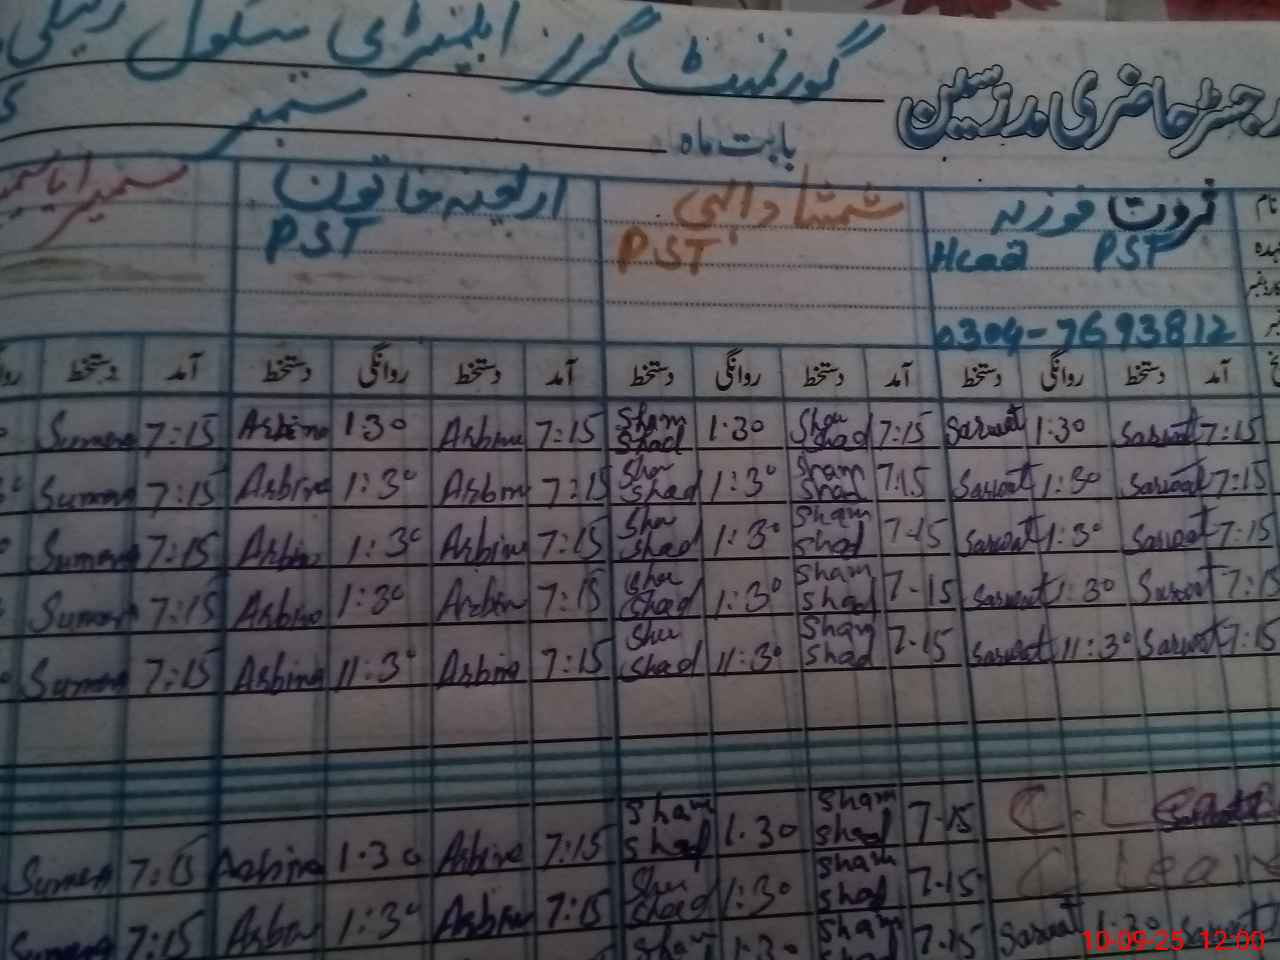 رجسٹر حاضری مدرسین گورنمنٹ گرلز ایلیمنٹری سکول
بابت ماہ ستمبر
نام ثروت فوزیہ شمشاد الہی خاتون
عہدہ Head PST PST PST
0304-7693812
آمد دستخط روانگی دستخط آمد دستخط روانگی دستخط آمد دستخط روانگی دستخط آمد دستخط
7:15 Sarwat 1:30 Sarwat 7:15 Sham shad 1:30 Sham shad 7:15 Asbina 1:30 Asbina 7:15 Sumera
7:15 Sarwat 1:30 Sarwat 7:15 Sham shad 1:30 Sham shad 7:15 Asbina 1:30 Asbina 7:15 Sumera
7:15 Sarwat 1:30 Sarwat 7-15 Sham shad 1:30 Sham shad 7:15 Asbina 1:30 Asbina 7:15 Sumera
7:15 Sarwat 1:30 Sarwat 7-15 Sham shad 1:30 Sham shad 7:15 Asbina 1:30 Asbina 7:15 Sumera
7:15 Sarwat 11:30 Sarwat 7-15 Sham shad 11:30 Sham shad 7:15 Asbina 11:30 Asbina 7:15 Sumera
C.L 7-15 Sham shad 1.30 Sham shad 7:15 Asbina 1.30 Asbina 7:15 Sumera
C Leave 7-15 Sham shad 1:30 Sham shad 7:15 Asbina 1:30 Asbina 7:15 Sumera
Sarwat 1:30 Sarwat 7-15 Sham shad 1:30 Sham
10-09-25 12:00